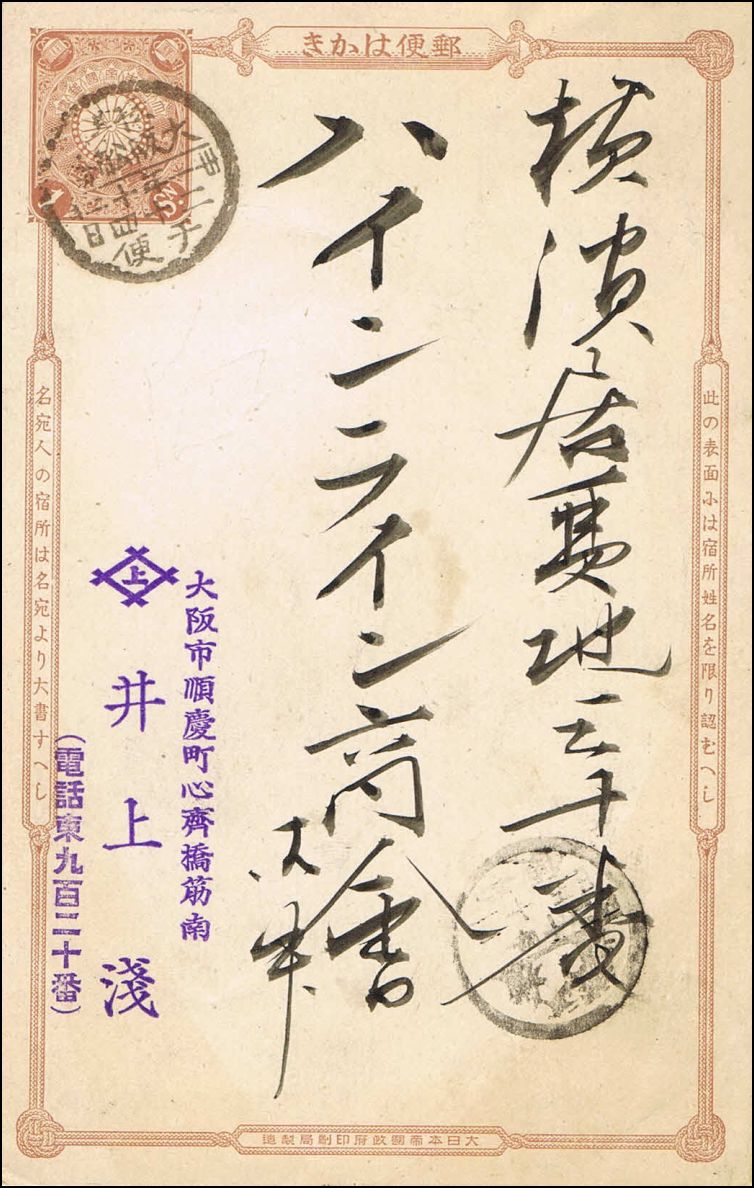 郵便はかき
此の表面には宿所姓名を限り認むへし
横濱居留地三十番
ハインライン商會
名宛人の宿所は名宛より大書すへし
大阪市順慶町心齋橋筋南
上
井上淺
(電話東九百二十番)
1 SN
大日本帝國政府印刷局製造